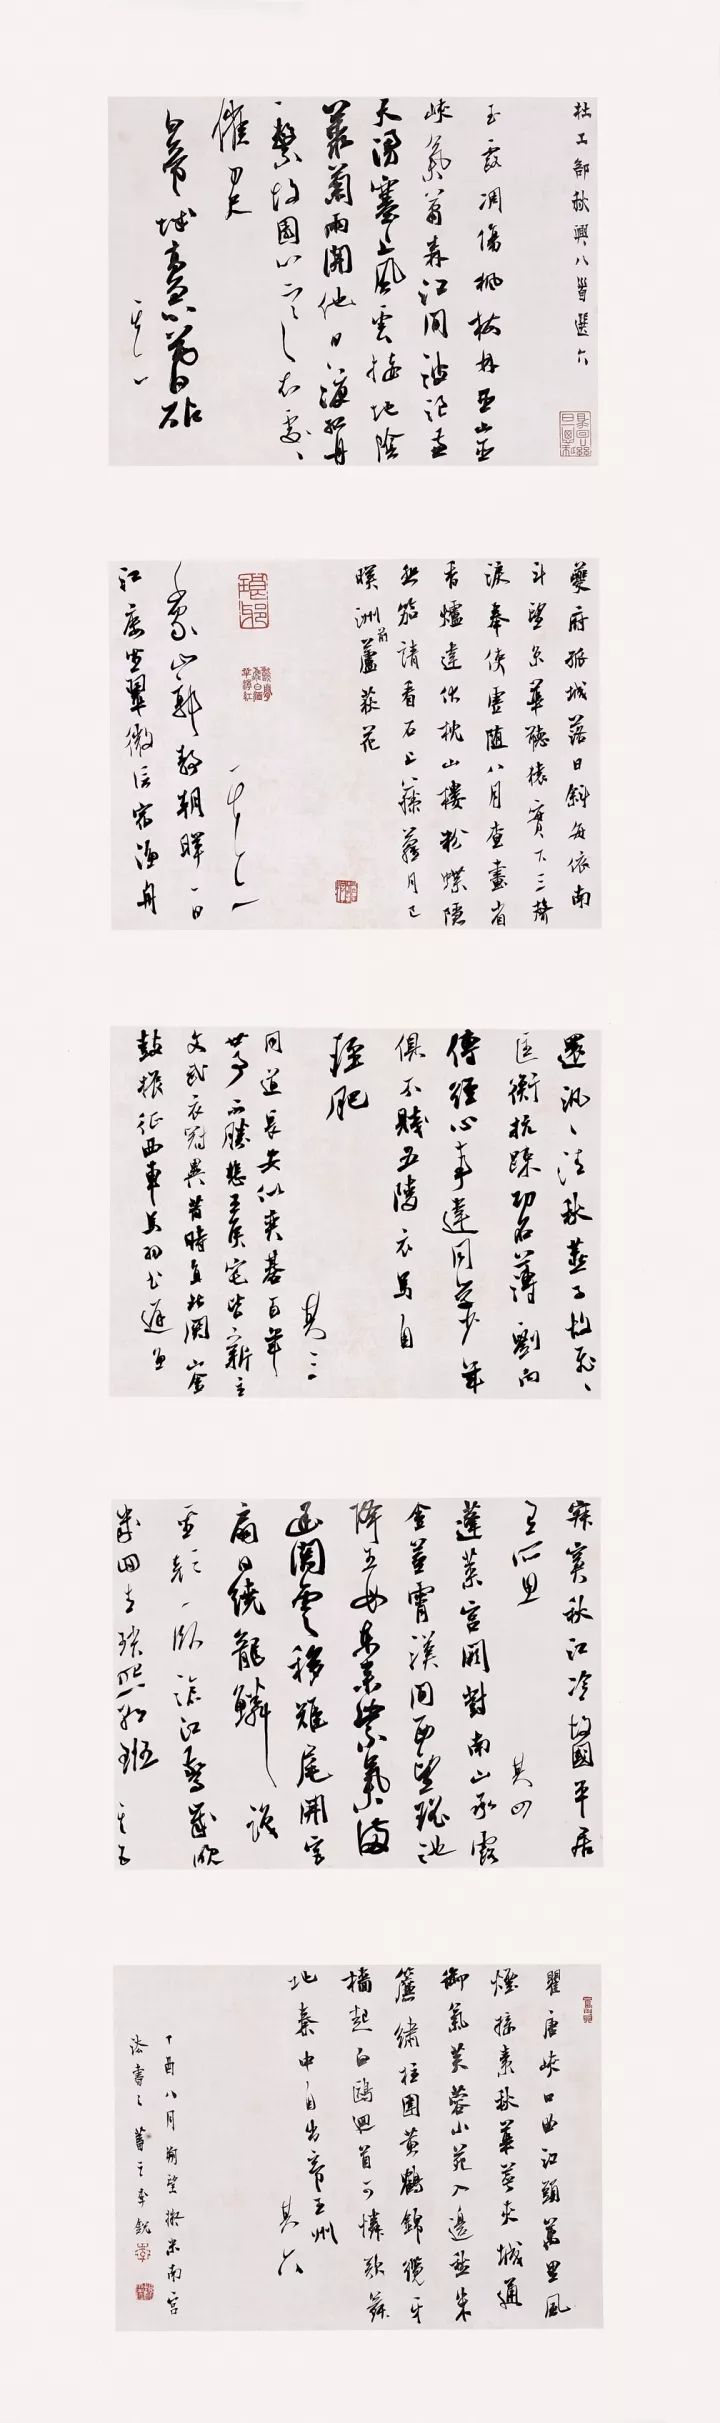 杜工部秋興八首選六
玉露凋傷楓樹林巫山巫
峽氣蕭森江間波浪兼
天湧塞上風雲接地陰
叢菊兩開他日淚孤舟
一繫故園心寒衣處處
催刀尺
白帝城高急暮砧
其一
夔府孤城落日斜每依南
斗望京華聽猿實下三聲
淚奉使虛隨八月查畫省
香爐違伏枕山樓粉蝶隱
悲笳請看石上藤蘿月已
暎洲前蘆荻花
其二
千家山郭静朝暉一日
江廔坐翠微信宿漁舟
還汎汎清秋燕子故飛飛
匡衡抗疎功名薄劉向
傳經心事違同學少年
俱不賤五陵衣馬自
輕肥
其三
聞道長安似奕碁百年
世事不勝悲王侯宅皆新主
文武衣冠異昔時直北關山金
鼓振征西車馬羽書遲魚
龍
寂寞秋江冷故國平居
有所思
其四
蓬萊宮闕對南山承露
金莖霄漢間西望瑤池
降王母東來紫氣滿
函關雲移雉尾開宮
扇日繞龍鱗識
聖顏一臥滄江驚歲晚
幾回青瑣照朝班
其五
瞿唐峽口曲江頭萬里風
煙接素秋華萼夾城通
御氣芙蓉小苑入邊愁朱
簾繡柱圍黃鶴錦纜牙
檣起白鷗迴首可憐歌舞
地秦中自古帝王州
其六
丁酉八月朔望擬米南宮
法書之